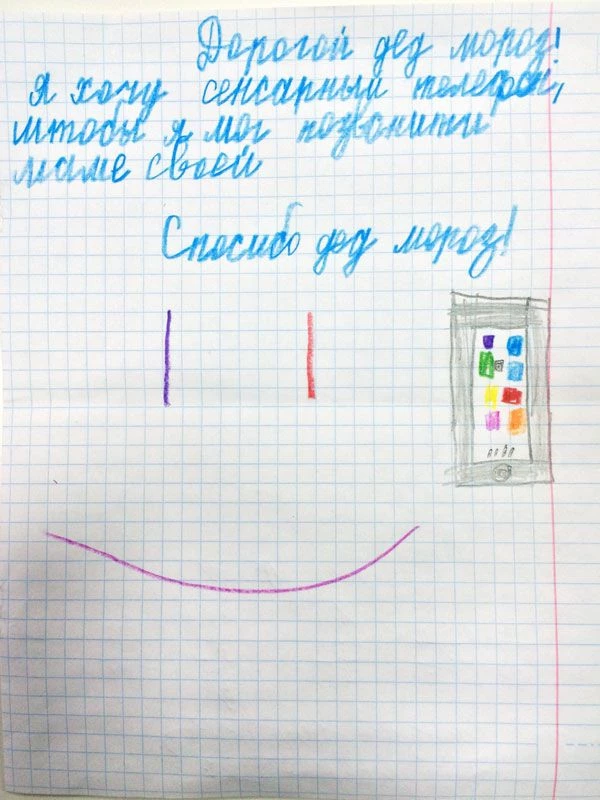 Дорогой дед мороз!
я хочу сенсарный телефон,
штобы я мог позвонити
маме своей
Спосибо дед мороз!